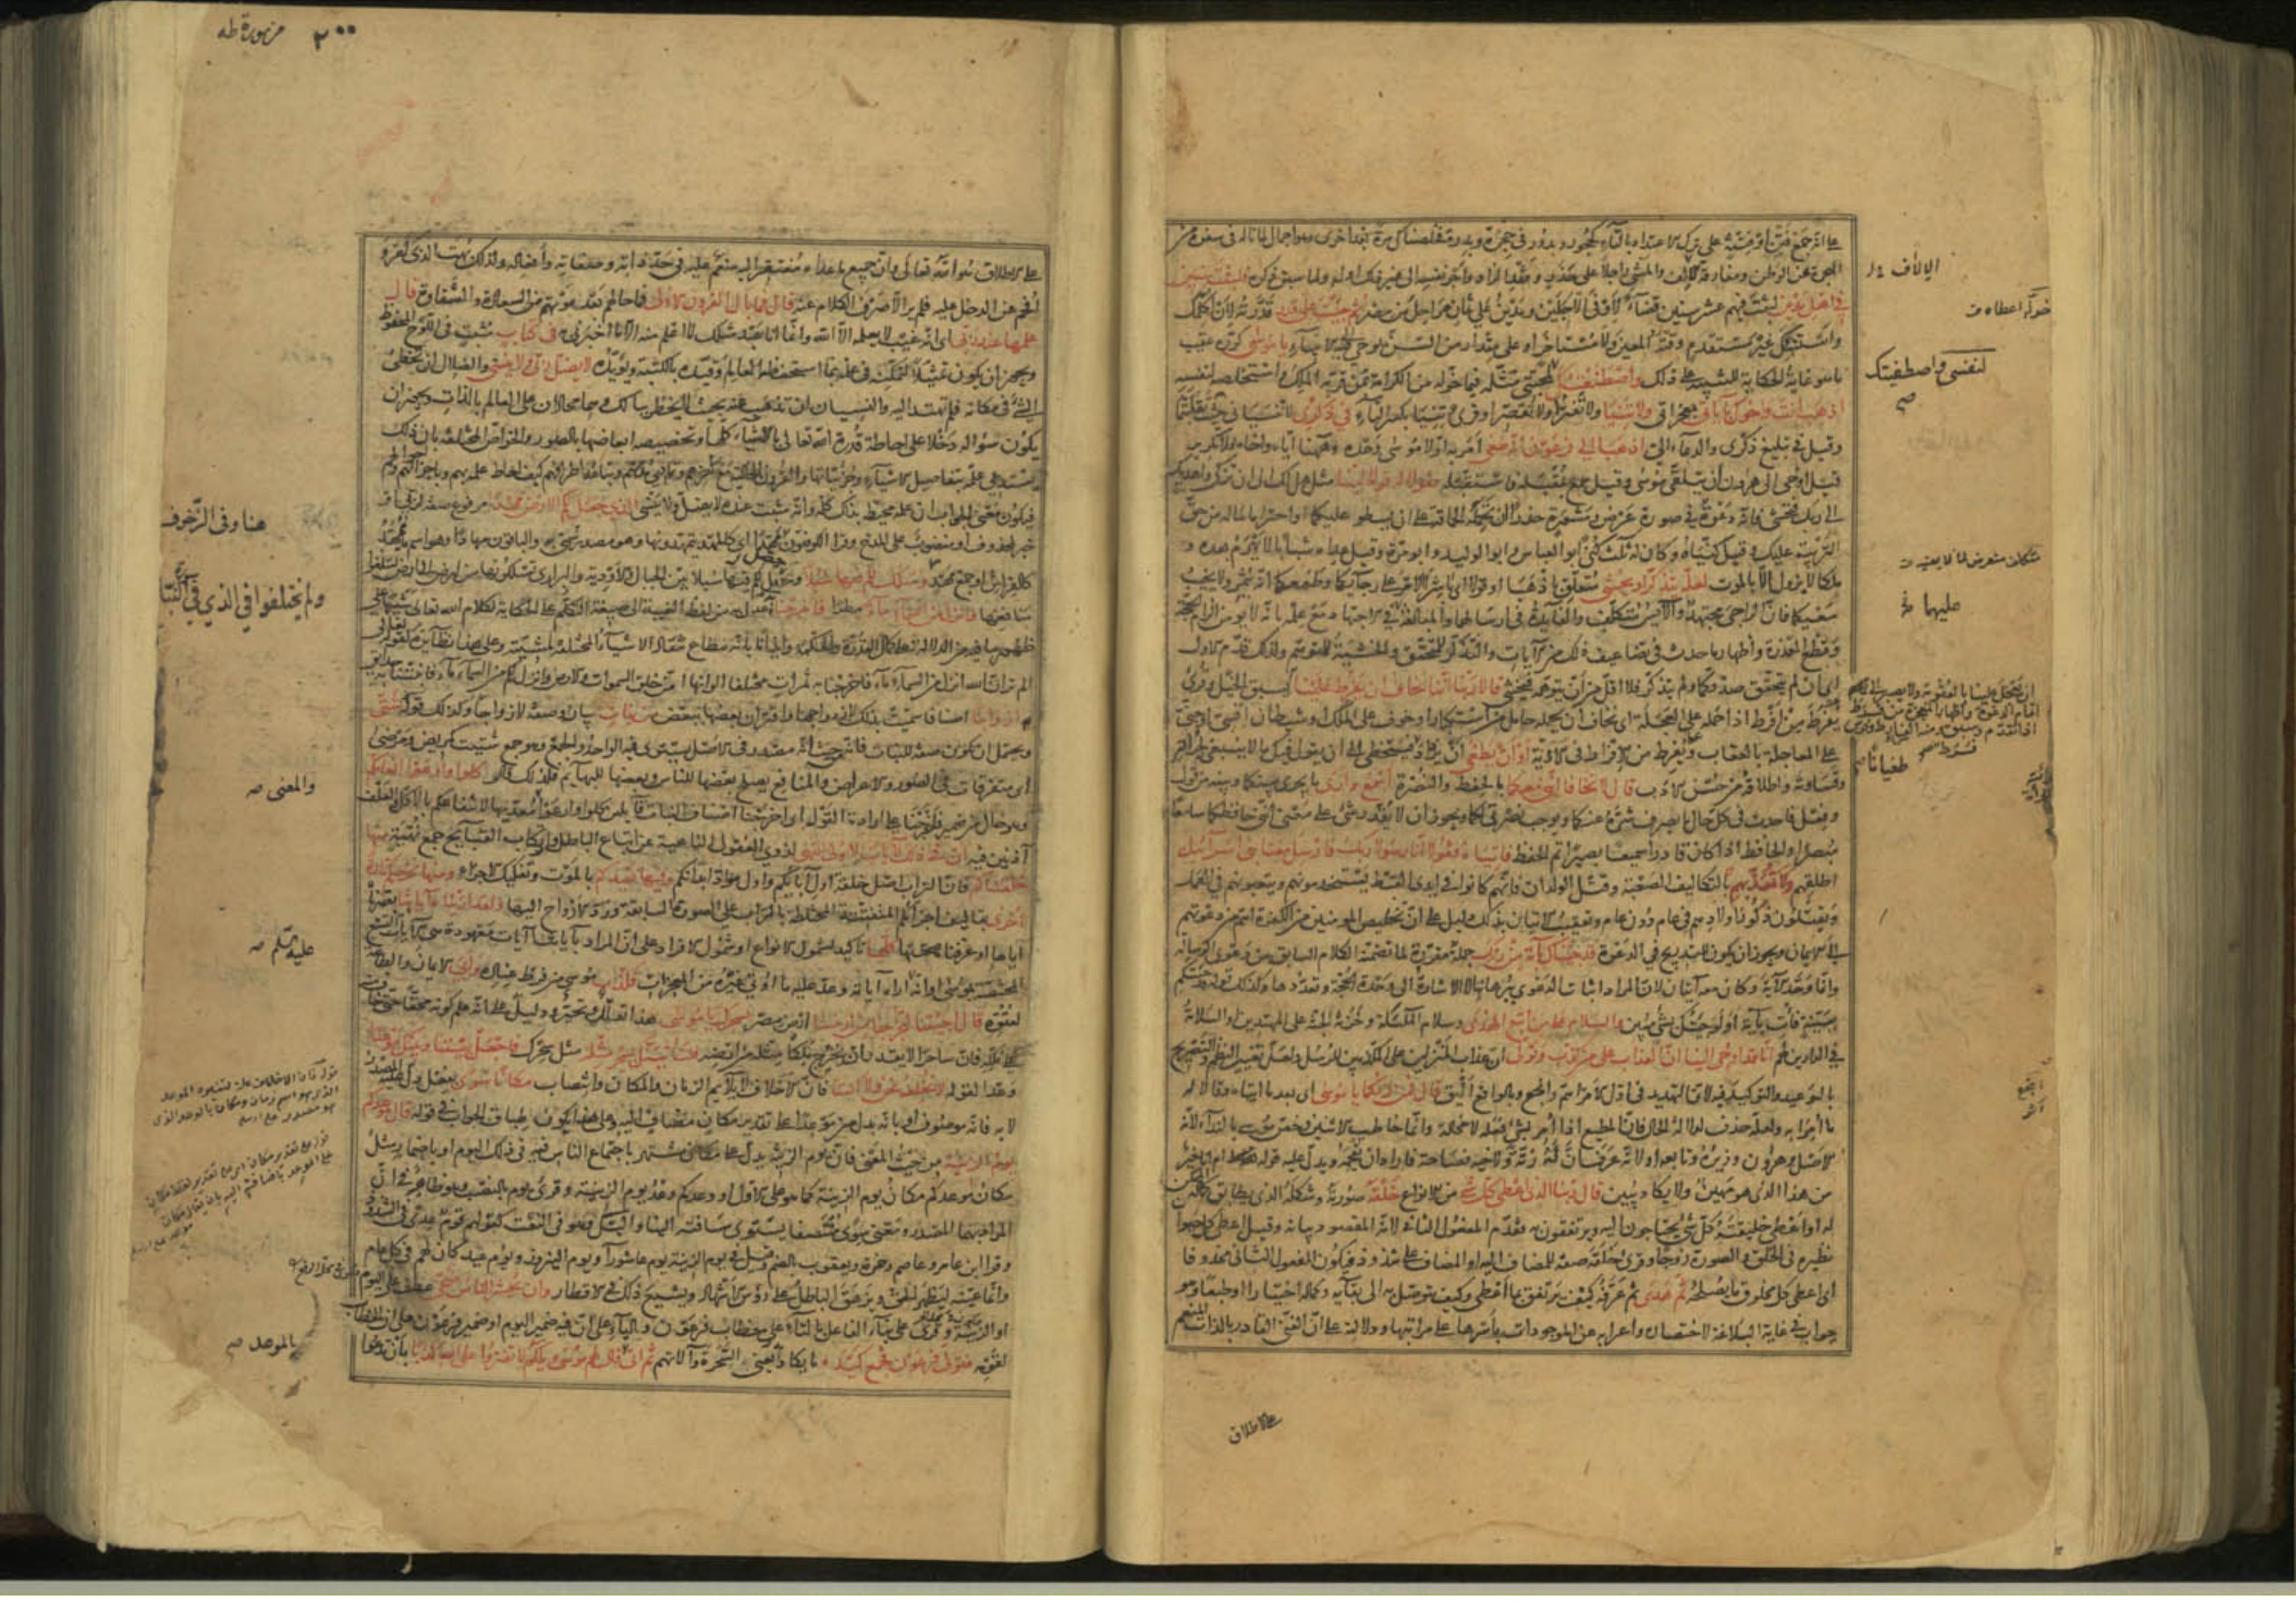 على انه جمع فتن او فتنة على ترك الاعتداد بالتاء كحجور وبدور في حجرة وبدرة فخلصناك مرة بعد اخرى وهو اجمال لما ناله في سفره من
الهجرة عن الوطن ومفارقة الالاف والمشي راجلا على حذر وفقد الزاد واجر نفسه الى غير ذلك اوله ولما سبق ذكره فلبثت سنين
في اهل مدين لبثت فيهم عشر سنين قضاء لاوفى الاجلين ومدين على ثمان مراحل من مصر ثم جئت على قدر قدرته لان اكلمك
واستنبئك غير مستقدم وقته المعين ولا مستاخر او على مقدار من السن يوحى فيه الى الانبياء يا موسى كرره عقيب
ما هو غاية الحكاية للتنبيه على ذلك واصطنعتك لمحبتي مثله فيما خوله من الكرامة بمن قربه الملك واستخلصه لنفسه
اذهب انت واخوك باياتي بمعجزاتي ولا تنيا ولا تفترا ولا تقصرا وقرئ تنيا بكسر التاء في ذكري لا تنسياني حيث تقلبتما
وقيل في تبليغ ذكري والدعاء الي اذهبا الى فرعون انه طغى امر به اولا موسى وحده وههنا اياه واخاه فلا تكرير
قيل اوحى الى هرون ان يتلقى موسى وقيل سمع بمقبله فاستقبله فقولا له قولا لينا مثل هل لك الى ان تزكى واهديك
الى ربك فتخشى فانه دعوة في صورة عرض ومشورة حذرا ان تحمله الحماقة على ان يسطو عليكما او احتراما لما له من حق
التربية عليك وقيل كنياه وكان له ثلث كنى ابو العباس وابو الوليد وابو مرة وقيل عداه شبابا لا يهرم بعده و
ملكا لا يزول الا بالموت لعله يتذكر او يخشى متعلق باذهبا او قولا اي باشرا الامر على رجائكما وطمعكما انه يثمر ولا يخيب
سعيكما فان الراجي مجتهد والآيس متكلف والفائدة في ارسالهما والمبالغة عليهما في اجتهادهما مع علمه بانه لا يؤمن الزام الحجة
وقطع المعذرة واظهار ما حدث في تضاعيف ذلك من الآيات والتذكر للمتحقق والخشية للمتوهم ولذلك قدم الاول
اي ان لم يتحقق صدقكما ولم يتذكر فلا اقل من ان يتوهمه فيخشى قالا ربنا اننا نخاف ان يفرط علينا
على المعاجلة بالعقاب ويفرط من الافراط في الاذية او ان يطغى ان يزداد طغيانا فيتخطى الى ان يقول فيك ما لا ينبغي لجراءته
وقساوته واطلاقه من حسن الادب قال لا تخافا انني معكما بالحفظ والنصرة اسمع وارى ما يجري بينكما وبينه من قول
وفعل فاحدث في كل حال ما يصرف شره عنكما ويوجب نصرتي لكما ويجوز ان لا يقدر شيء على معنى انني حافظكما سامعا
مبصرا والحافظ اذا كان قادرا سميعا بصيرا تم الحفظ فاتياه فقولا انا رسولا ربك فارسل معنا بني اسرائيل
اطلقهم ولا تعذبهم بالتكاليف الصعبة وقتل الولدان فانهم كانوا في ايدي القبط يستخدمونهم ويتعبونهم في العمل
ويقتلون ذكور اولادهم في عام دون عام وتعقيب الاتيان بذلك دليل على ان تخليص المؤمنين من الكفرة اهم من دعوتهم
الى الايمان ويجوز ان يكون للتدريج في الدعوة قد جئناك بآية من ربك جملة مقررة لما تضمنه الكلام السابق من دعوى الرسالة
وانما وحد الآية وكان معه آيتان لان المراد اثبات الدعوى ببرهانها لا الاشارة الى وحدة الحجة وتعددها وكذلك قوله قد جئتكم
ببينة فات بآية اولو جئتك بشيء مبين والسلام على من اتبع الهدى وسلام الملائكة وخزنة الجنة على المهتدين او السلامة
في الدارين لهم انا قد اوحي الينا ان العذاب على من كذب وتولى ان عذاب المنزلين على المكذبين للرسل ولعل تغيير النظم والتصريح
بالوعيد والتوكيد فيه لان التهديد في اول الامر اهم وانجع وبالواقع اليق قال فمن ربكما يا موسى اي بعد ما اتياه وقالا له
ما امرا به ولعله حذف لدلالة الحال فان المطيع اذا امر بشيء فعله لا محالة وانما خاطب الاثنين وخص موسى بالنداء لانه
الاصل وهرون وزيره وتابعه او لانه عرف ان له رتة ولاخيه فصاحة فاراد ان يفحمه ويدل عليه قوله ام انا خير
من هذا الذي هو مهين ولا يكاد يبين قال ربنا الذي اعطى كل شيء من الانواع خلقه صورته وشكله الذي يطابق كماله الممكن
له او اعطى خليقته كل شيء يحتاجون اليه ويرتفقون به وقدم المفعول الثاني لانه المقصود بيانه وقيل اعطى كل حيوان
نظيره في الخلق والصورة زوجا وقرئ خلقه صفة للمضاف اليه او المضاف على شذوذ فيكون المفعول الثاني محذوفا
اي اعطى كل مخلوق ما يصلحه ثم هدى ثم عرفه كيف يرتفق بما اعطي وكيف يتوصل به الى بقائه وكماله اختيارا او طبعا وهو
جواب في غاية البلاغة لاختصاره واعرابه عن الموجودات باسرها على مراتبها ودلالته على ان الغني القادر بالذات المنعم
على الاطلاق
الالاف
خوله اعطاه
لنفسي واصطفيتك
صح
عليهما
طغيانا
٢٠٠ من سورة طه
على الاطلاق هو الله تعالى وان جميع ما عداه مفتقر اليه منعم عليه في حد ذاته وصفاته وافعاله ولذلك بهت الذي كفر و
افحم عن الدخل عليه فلم ير الا صرف الكلام عنه قال فما بال القرون الاولى فما حالهم بعد موتهم من السعادة والشقاوة قال
علمها عند ربي اي انه غيب لا يعلمه الا الله وانما انا عبد مثلك لا اعلم منه الا ما اخبرني به في كتاب مثبت في اللوح المحفوظ
ويجوز ان يكون تمثيلا لتمكنه في علمه بما استحفظه العالم وقيده بالكتبة ويؤيده لا يضل ربي ولا ينسى والضلال ان تخطئ
الشيء في مكانه فلم تهتد اليه والنسيان ان تذهب عنه بحيث لا يخطر ببالك وهما محالان على العالم بالذات ويجوز ان
يكون سؤاله دخلا على احاطة قدرة الله تعالى بالاشياء كلها وتخصيصه ابعاضها بالصور والخواص المختلفة بان ذلك
يستدعي علمه بتفاصيل الاشياء وجزئياتها والقرون الخالية مع كثرتهم وتمادي مدتهم وتباعد اطرافهم كيف احاط علمه بهم وباجزائهم واحوالهم
فيكون معنى الجواب ان علمه محيط بذلك كله وانه مثبت عنده لا يضل ولا ينسى الذي جعل لكم الارض مهدا مرفوع صفة لربي او
خبر لمحذوف او منصوب على المدح وقرا الكوفيون مهدا اي كالمهد تتمهدونها وهو مصدر سمي به والباقون مهادا وهو اسم ما يمهد
كالفراش او جمع مهد وسلك لكم فيها سبلا وحصل لكم فيها سبلا بين الجبال والاودية والبراري تسلكونها من ارض الى ارض لتبلغوا
منافعها وانزل من السماء ماء مطرا فاخرجنا به عدل به من لفظ الغيبة الى صيغة التكلم على الحكاية لكلام الله تعالى تنبيها على
ظهور ما فيه من الدلالة على كمال القدرة والحكمة وايذانا بانه مطاع تنقاد الاشياء المختلفة لمشيته وعلى هذا نظائره كقوله تعالى
الم تر ان الله انزل من السماء ماء فاخرجنا به ثمرات مختلفا الوانها امن خلق السموات والارض وانزل لكم من السماء ماء فانبتنا به حدائق
ازواجا اصنافا سميت بذلك لازدواجها واقتران بعضها ببعض من نبات بيان وصفة لازواجا وكذلك قوله شتى
ويحتمل ان يكون صفة للنبات فانه من حيث انه مصدر في الاصل يستوي فيه الواحد والجمع وهو جمع شتيت كمريض ومرضى
اي متفرقات في الصور والاعراض والمنافع يصلح بعضها للناس وبعضها للبهائم فلذلك قال كلوا وارعوا انعامكم
وهو حال من ضمير فاخرجنا على ارادة القول اي اخرجنا اصناف النبات قائلين كلوا وارعوا معديها لانتفاعكم بالاكل والعلف
آذنين فيه ان في ذلك لايات لاولي النهى لذوي العقول الناهية عن اتباع الباطل وارتكاب القبائح جمع نهية منها
خلقناكم فان التراب اصل خلقة اول آبائكم واول مواد ابدانكم وفيها نعيدكم بالموت وتفكيك الاجزاء ومنها نخرجكم تارة
اخرى بتاليف اجزائكم المتفتتة المختلطة بالتراب على الصورة السابقة ورد الارواح اليها ولقد اريناه آياتنا بصرناه
اياها او عرفناه صحتها كلها تاكيد لشمول الانواع او شمول الافراد على ان المراد بآياتنا آيات معهودة
المختصة بموسى او انه اراه آياته وعد عليه ما اوتي غيره من المعجزات فكذب موسى من فرط عناده وابى الايمان والطاعة
لعتوه قال اجئتنا لتخرجنا من ارضنا ارض مصر بسحرك يا موسى هذا تعلل وتحير ودليل على انه علم كونه محقا حتى خاف
على ملكه فان ساحرا لا يقدر ان يخرج ملكا مثله من ارضه فلناتينك بسحر مثله مثل سحرك فاجعل بيننا وبينك موعدا
وعدا لقوله لا نخلفه نحن ولا انت فان الاخلاف لا يلائم الزمان والمكان وانتصاب مكانا سوى بفعل دل عليه المصدر
لا به فانه موصوف او بانه بدل من موعدا على تقدير مكان مضاف اليه وعلى هذا يكون طباق الجواب في قوله قال موعدكم
يوم الزينة من حيث المعنى فان يوم الزينة يدل على مكان مشتهر باجتماع الناس فيه في ذلك اليوم او باضمار مثل
مكان موعدكم مكان يوم الزينة كما هو على الاول او وعدكم وعد يوم الزينة وقرئ يوم بالنصب وهو ظاهر في ان
المراد بهما المصدر ومعنى سوى منتصفا يستوي مسافته الينا واليك وهو في النعت كقولهم قوم عدى في الشذوذ
وقرا ابن عامر وعاصم وحمزة ويعقوب بالضم وقيل في يوم الزينة يوم عاشورا ويوم النيروز ويوم عيد كان لهم في كل عام
وانما عينه ليظهر الحق ويزهق الباطل على رؤس الاشهاد ويشيع ذلك في الاقطار وان يحشر الناس ضحى عطف على اليوم
او الزينة وقرئ على بناء الفاعل بالتاء على خطاب فرعون وبالياء على ان فيه ضمير اليوم او ضمير فرعون على ان الخطاب
لقومه فتولى فرعون فجمع كيده ما يكاد به يعني السحرة وآلاتهم ثم اتى قال لهم موسى ويلكم لا تفتروا على الله كذبا بان تدعوا
هنا وفي الزخرف
ولم يختلفوا في الذي في النبأ
والمعنى صح
عليه صح
بالموعد صح